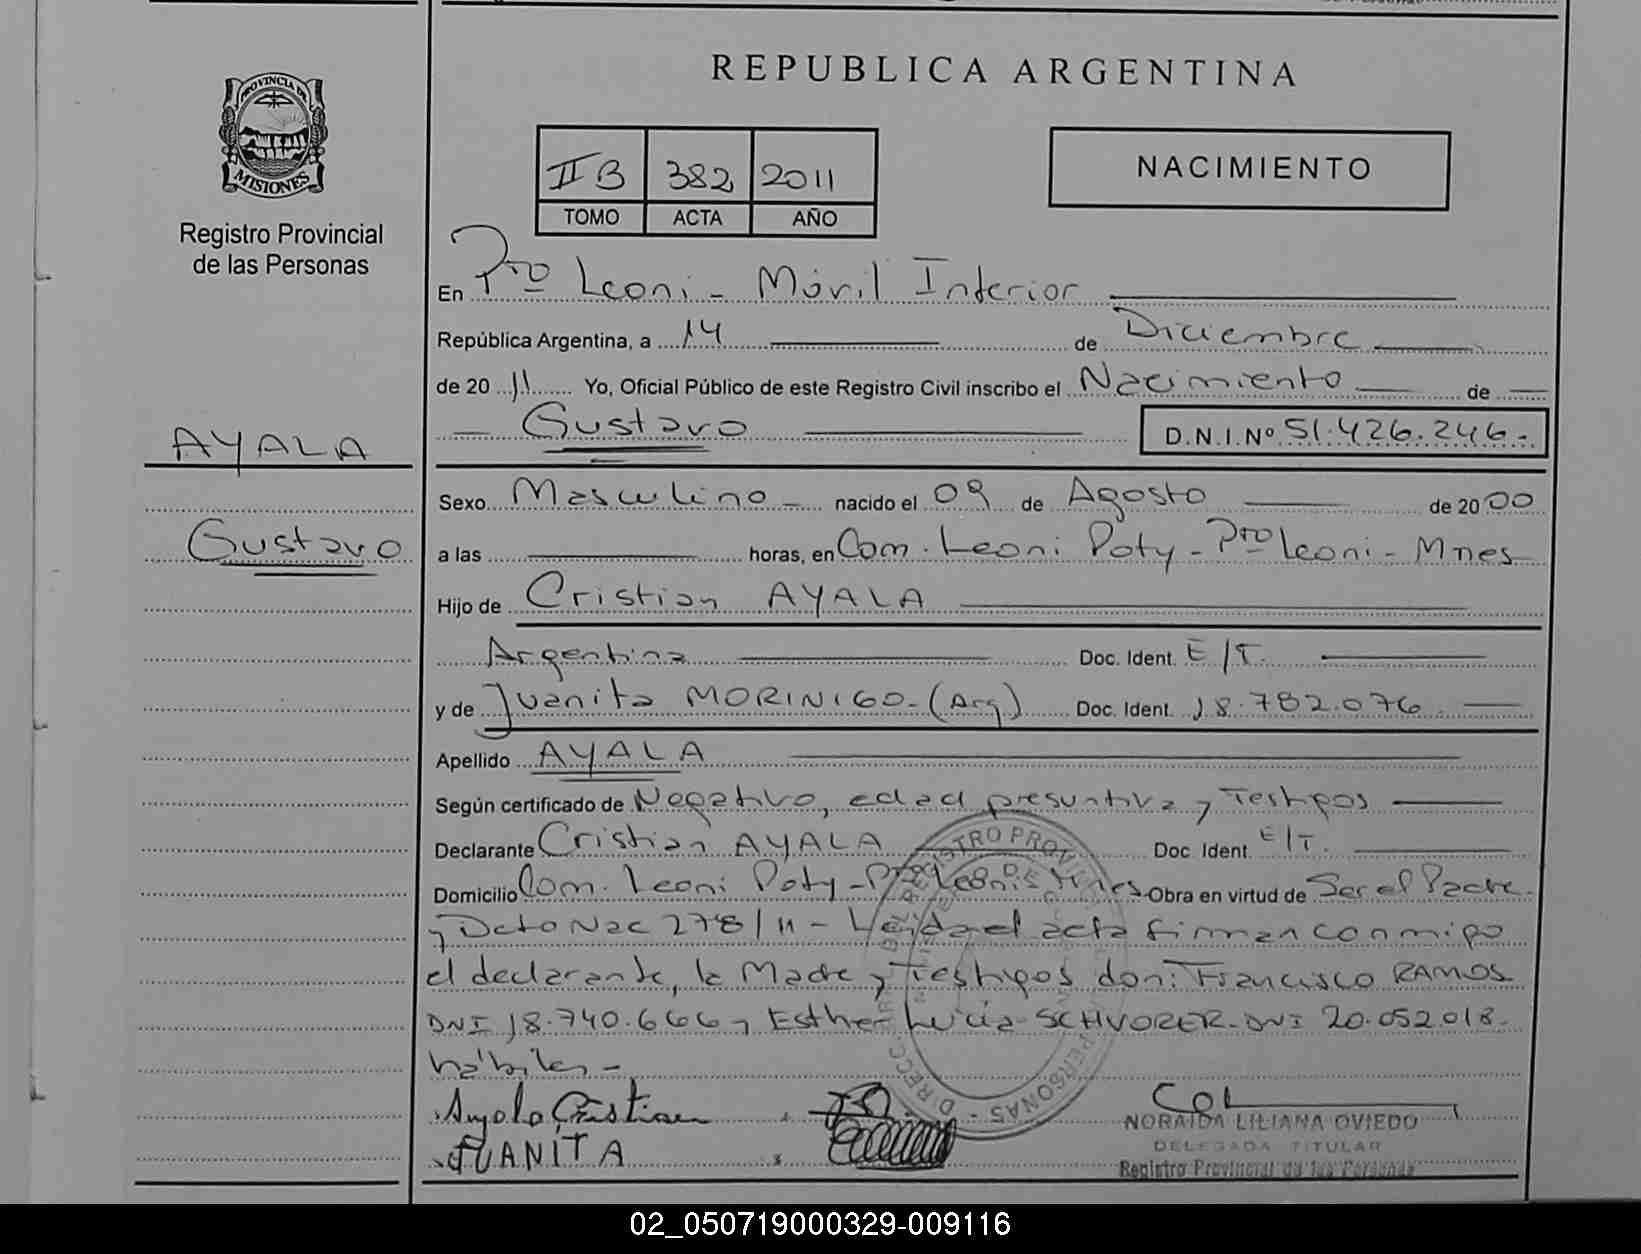 REPUBLICA ARGENTINA
PROVINCIA DE
MISIONES
Registro Provincial
de las Personas
II B 382 2011
TOMO ACTA AÑO
NACIMIENTO
En Pto Leoni - Móvil Interior
República Argentina, a 14 de Diciembre
de 20 11 Yo, Oficial Público de este Registro Civil inscribo el Nacimiento de
Gustavo D.N.I. Nº 51.426.246.-
AYALA
Gustavo
Sexo Masculino - nacido el 09 de Agosto de 20 00
a las horas, en Com. Leoni Poty - Pto Leoni - Mnes
Hijo de Cristian AYALA
Argentina Doc. Ident. E/T.
y de Juanita MORINIGO - (Arg) Doc. Ident. 18.782.076
Apellido AYALA
Según certificado de Negativo, edad presuntiva y Testigos
Declarante Cristian AYALA Doc. Ident. E/T.
Domicilio Com. Leoni Poty - Pto Leoni - Mnes - Obra en virtud de Ser el Padre
y Dcto Nac 278/11 - Leida el acta firman conmigo
el declarante, la Madre y Testigos don: Francisco RAMOS
DNI 18.740.666 y Esther Lucia SCHVORER - DNI 20.052.018.
hábiles -
Ayala Cristian
JUANITA
NORAIDA LILIANA OVIEDO
DELEGADA TITULAR
Registro Provincial de las Personas
02_050719000329-009116